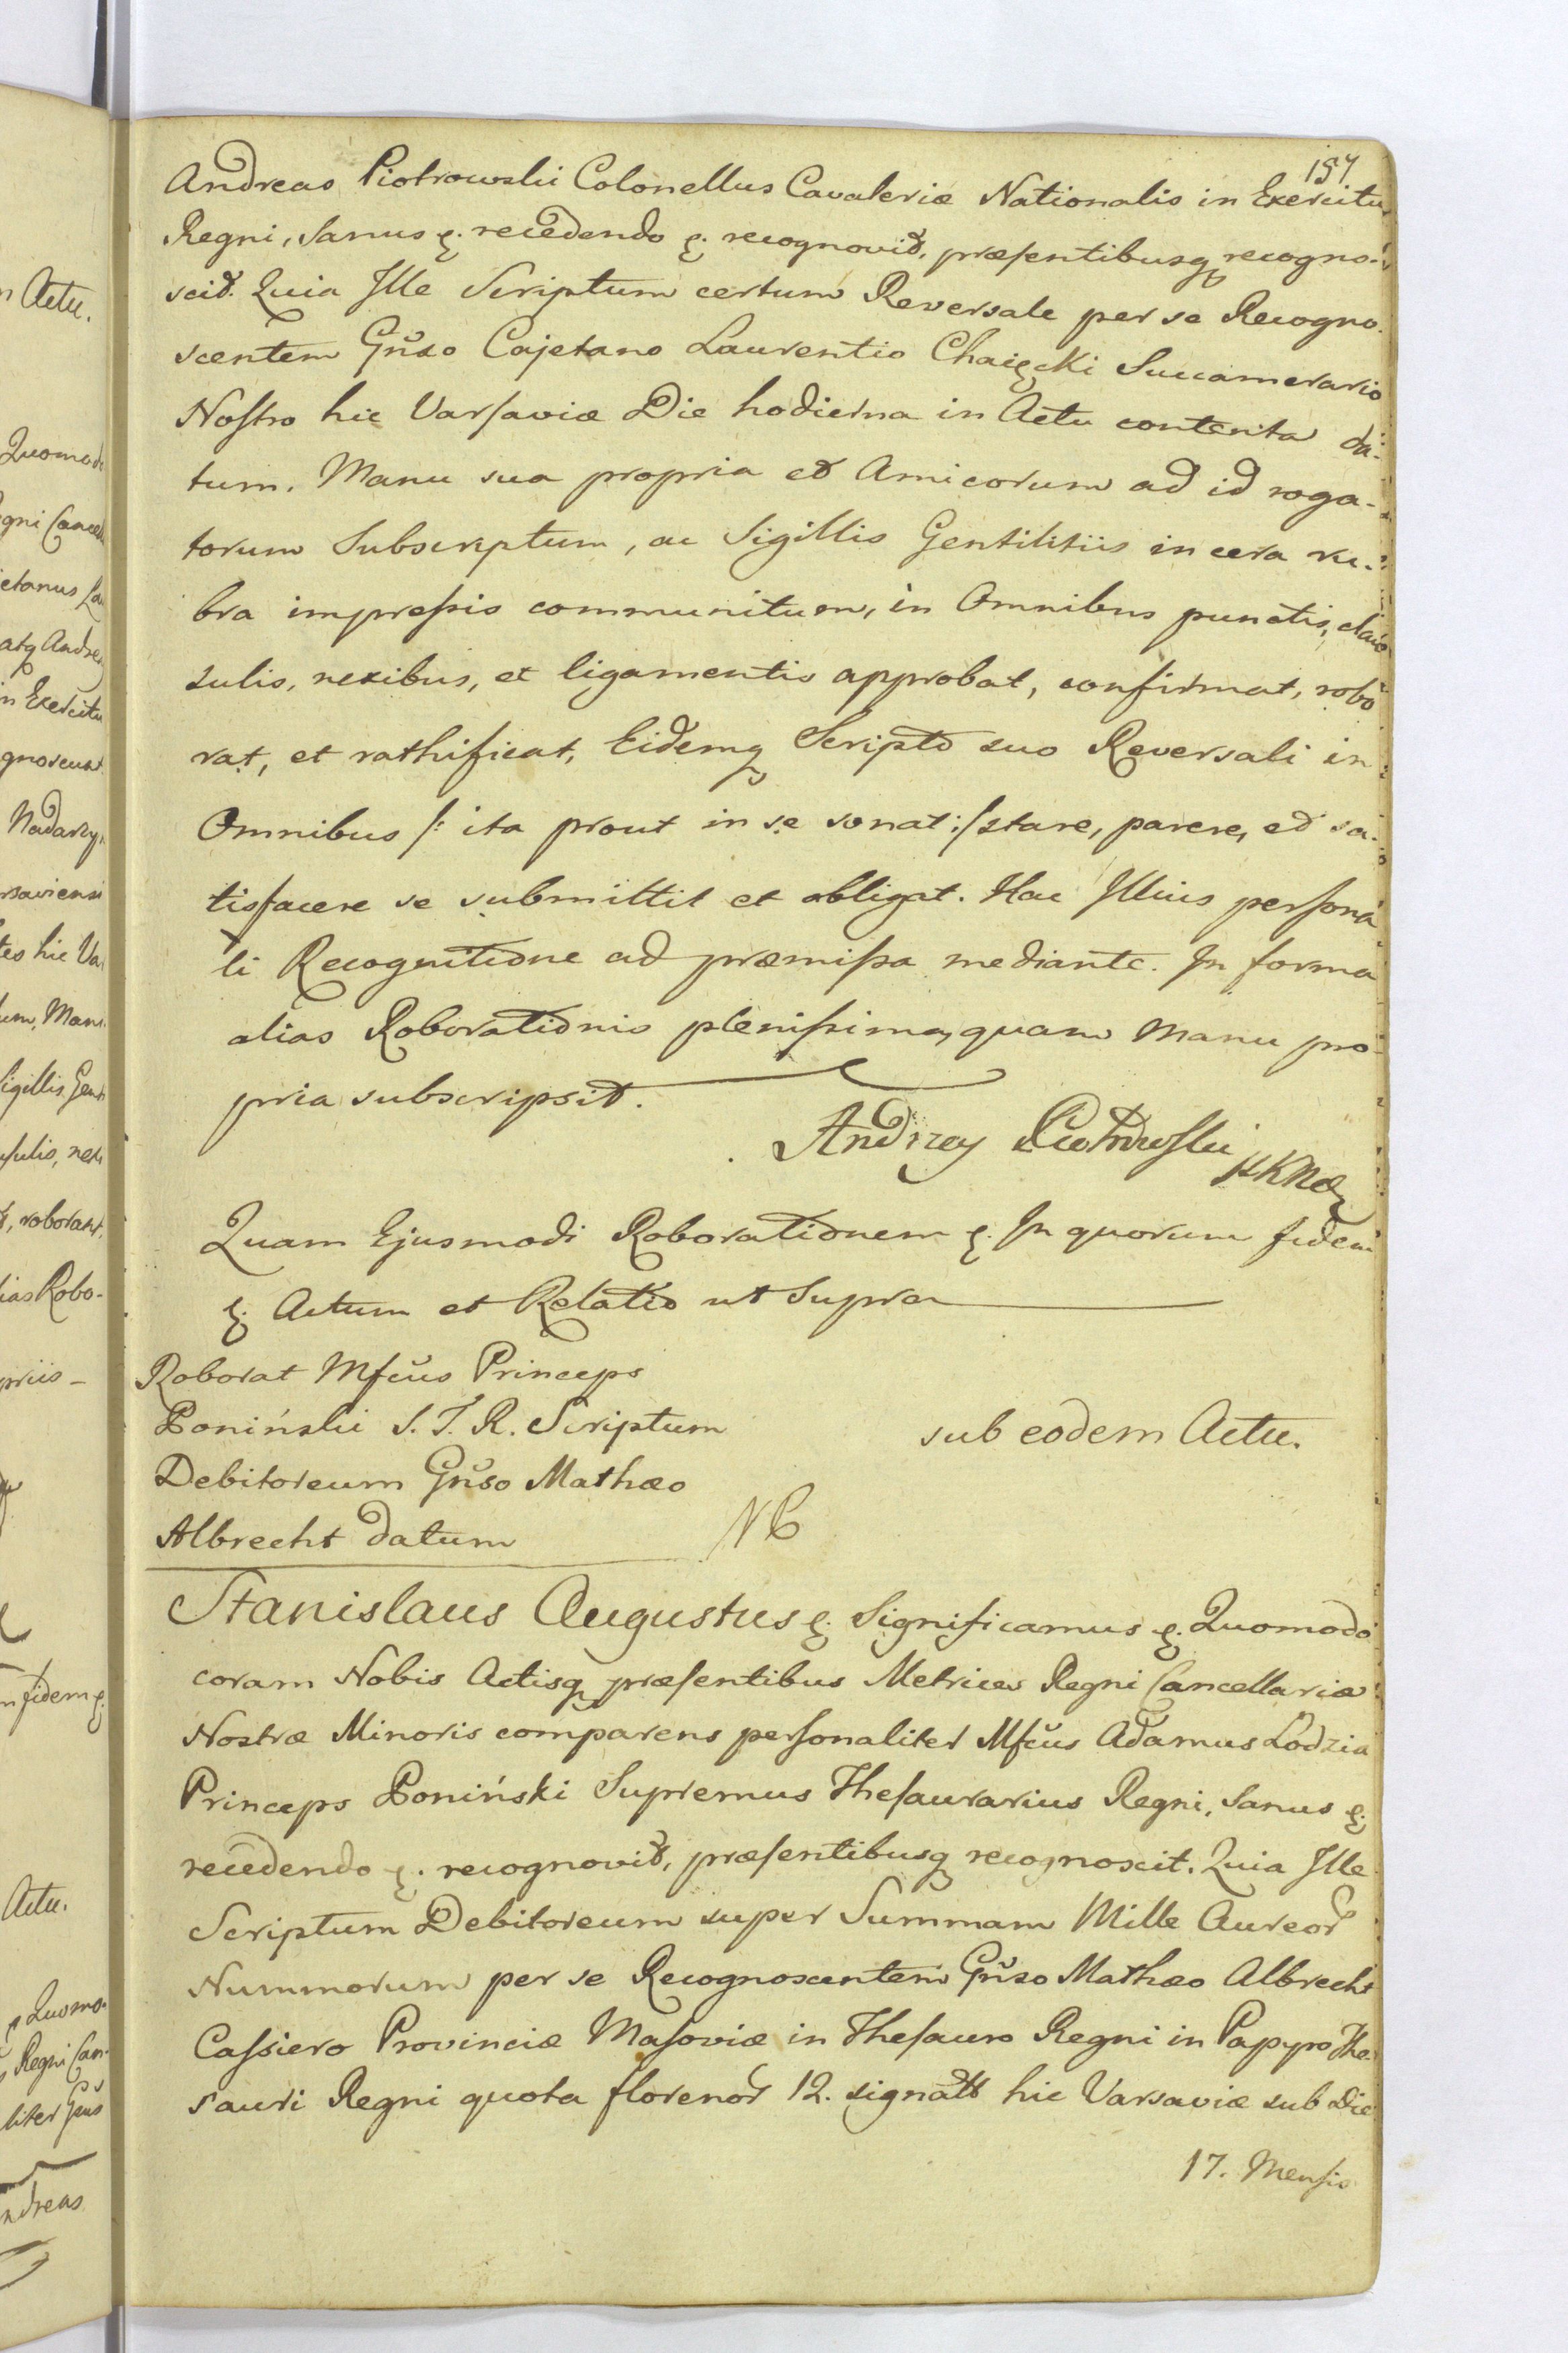 157
Andreas Piotrowski Colonellus Cavaleriæ Nationalis in Exercitu
Regni, Sanus &. recedendo &. recognovit, præsentibusq recogno-
scit. Quia Ille Scriptum certum Reversale per se Recogno-
scentem Gñso Cajetano Laurentio Chaięcki Succamerario
Nostro hic Varsaviæ Die hodierna in Actu contenta da-
tum. Manu sua propria et Amicorum ad id roga-
torum Subscriptum, ac Sigillis Gentilitiis in cera ru-
bra impressis communitum, in Omnibus punctis, clau-
sulis, nexibus, et ligamentis approbat, confirmat, robo
rat, et rathificat, Eidemq Scripto suo Reversali in
Omnibus /: ita prout in se sonat :/ stare, parere, et sa-
tisfacere se submittit et obligat. Hac Illius persona
li Recognitione ad præmissa mediante. In forma
alias Roborationis plenissima, quam Manu pro-
pria subscripsit.
Andrzey Piotrowski
Quam Ejusmodi Roborationem &. In quorum fidem
&. Actum et Relatio ut Supra
Roborat Mfcus Princeps
Poniński S. T. R. Scriptum
Debitoreum Gñso Mathæo
Albrecht datum
sub eodem Actu.
Stanislaus Augustus &. Significamus &. Quomodo
coram Nobis Actisq præsentibus Metrices Regni Cancellariæ
Nostræ Minoris comparens personaliter Mfcus Adamus Lodzia
Princeps Poniński Supremus Thesaurarius Regni, Sanus &.
recedendo &. recognovit, præsentibusq recognoscit. Quia Ille
Scriptum Debitoreum super Summam Mille Aureor
Nummorum per se Recognoscentem Gñso Mathæo Albrecht
Cassiero Provinciæ Masoviæ in Thesauro Regni in Papyro The-
sauri Regni quota florenor 12. signata hic Varsaviæ sub Die
17. Mensis